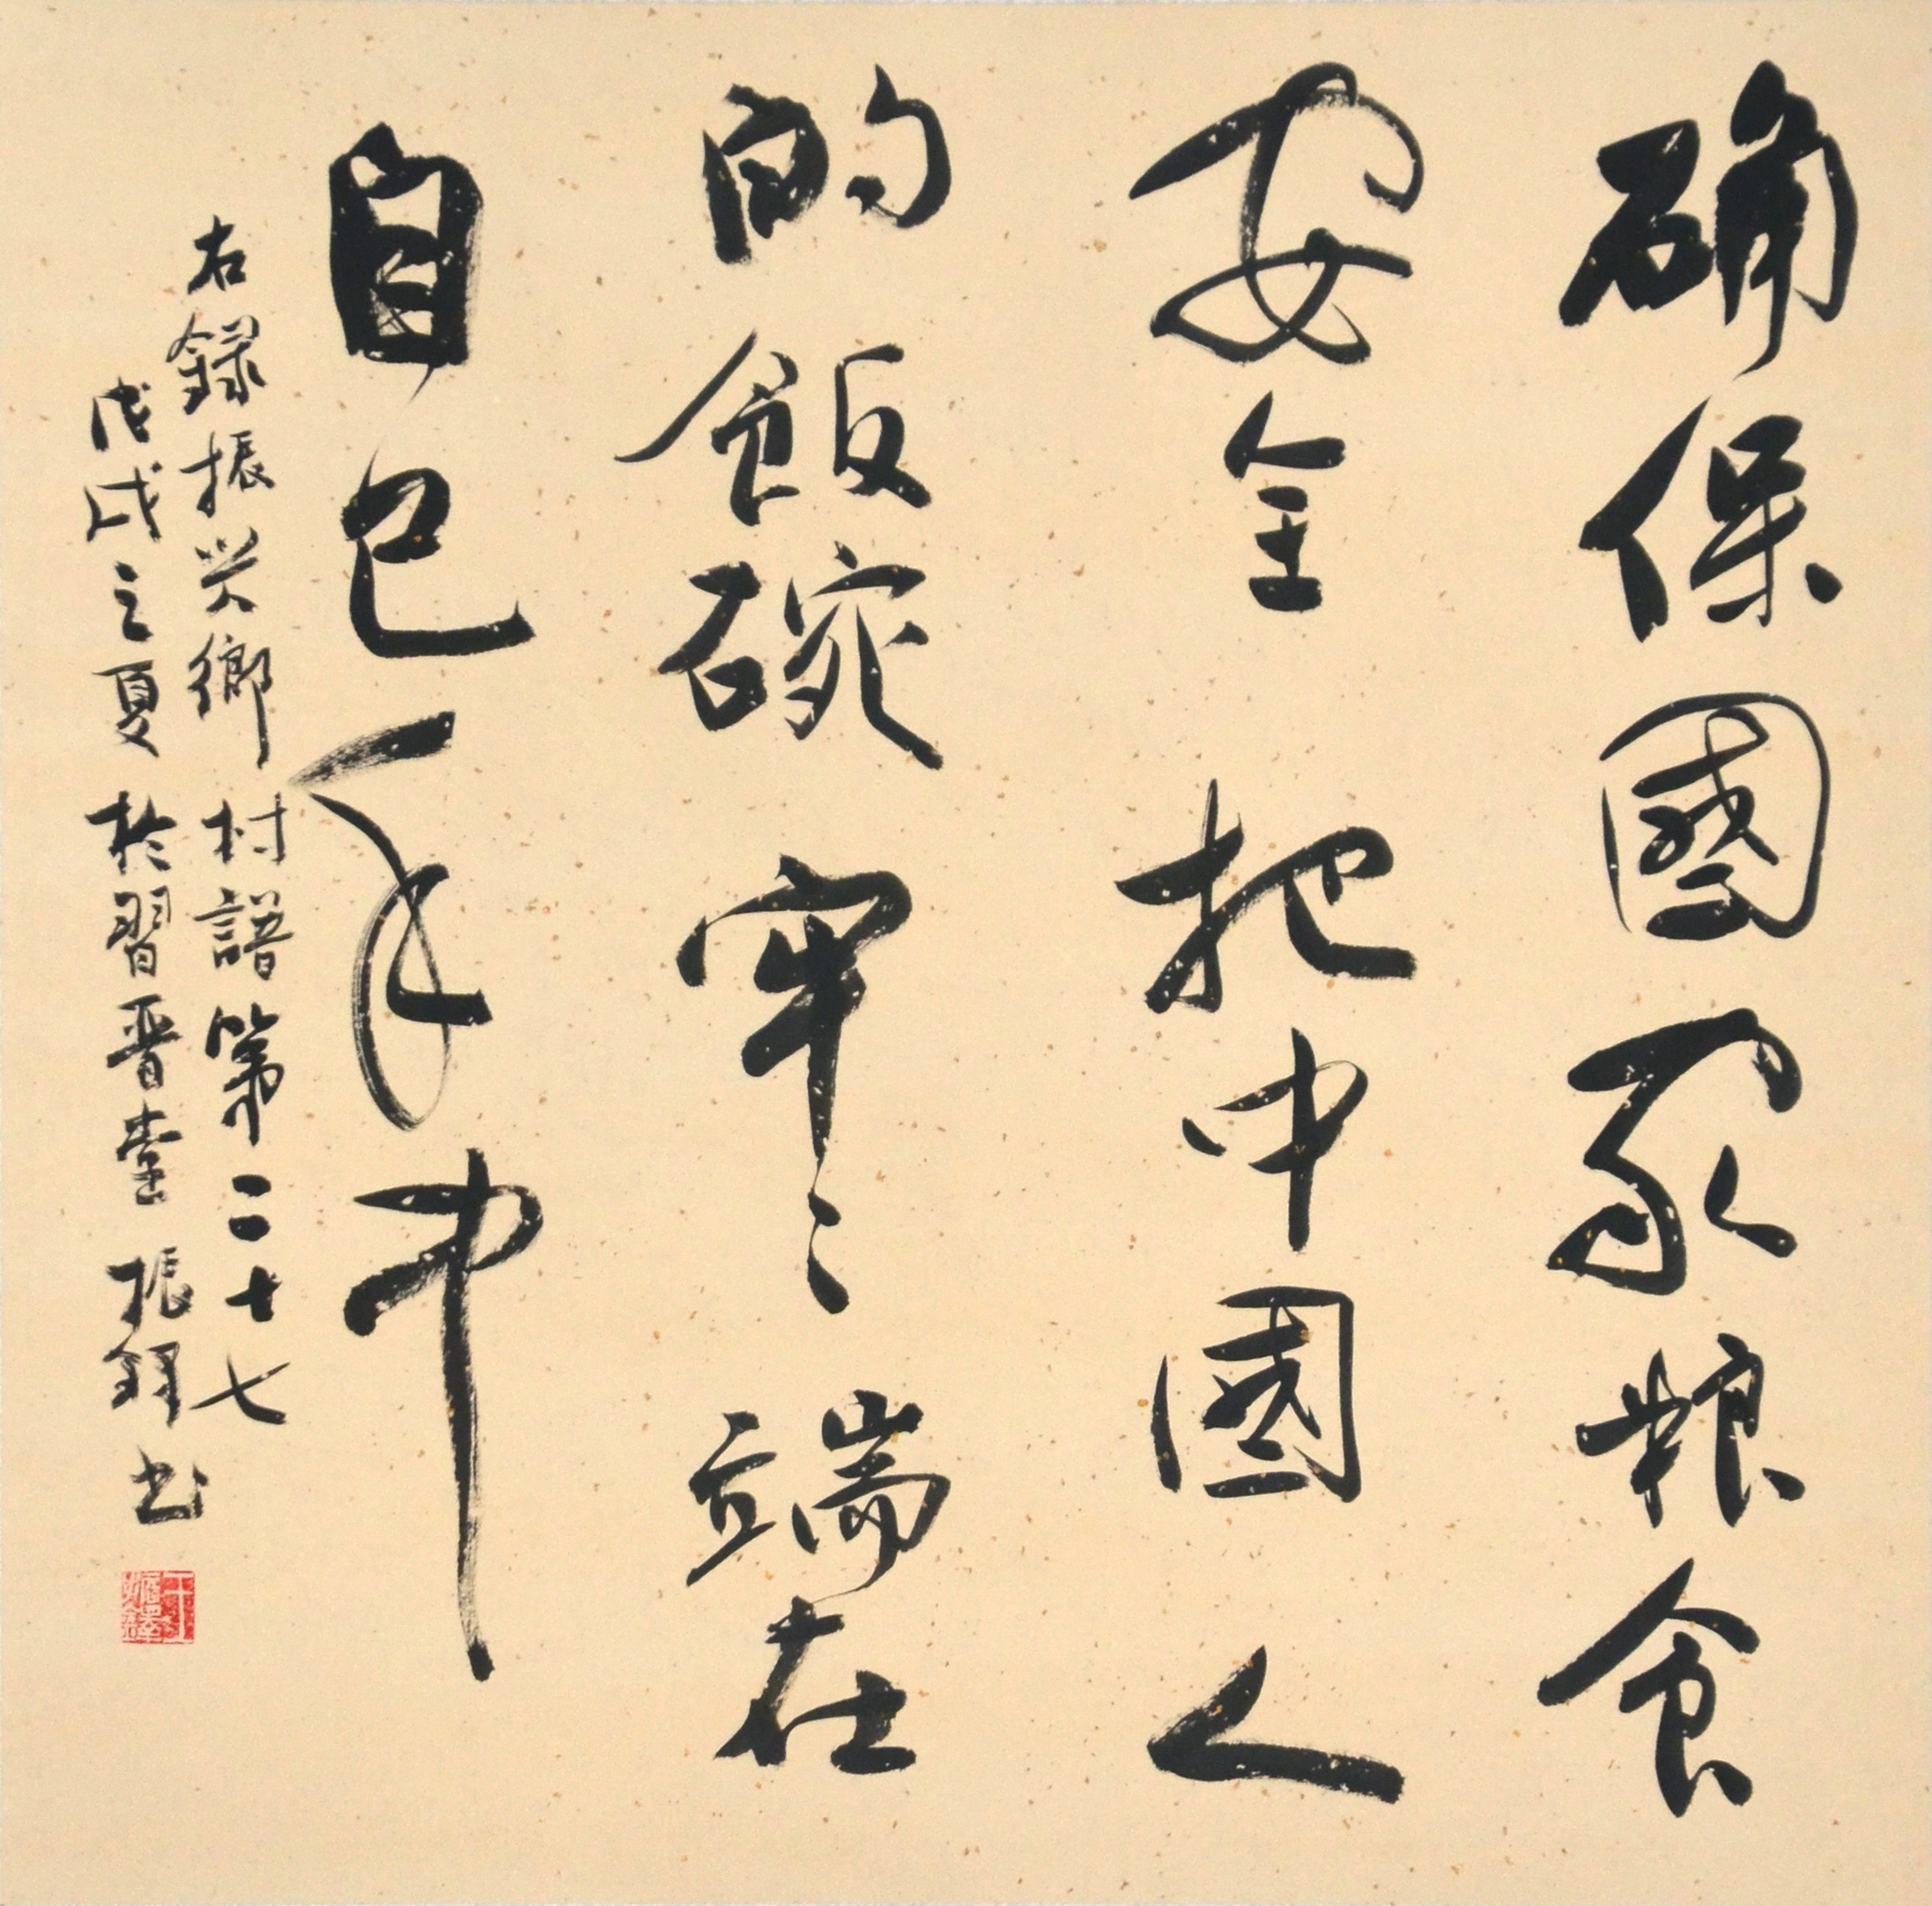 确保國家粮食
安全把中國人
的飯碗牢々端在
自己手中
右録振兴鄉村譜第二十七
戊戌之夏於習晋堂振鐸书